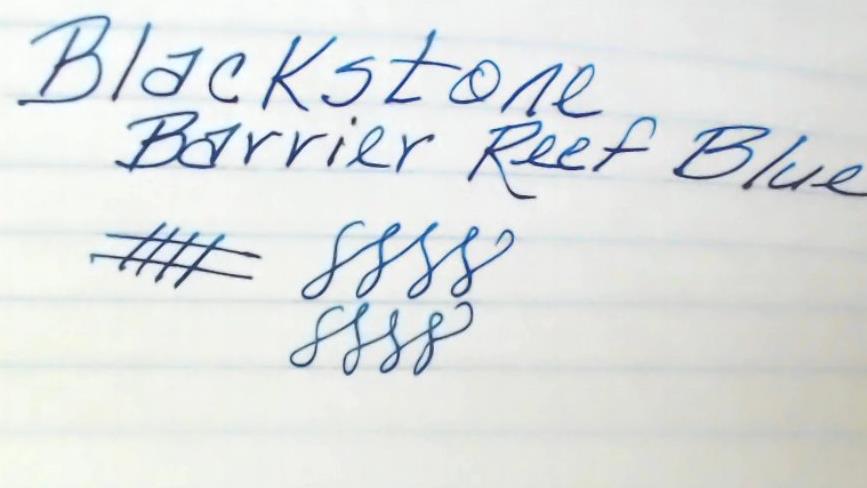 Blackstone
Barrier Reef Blue